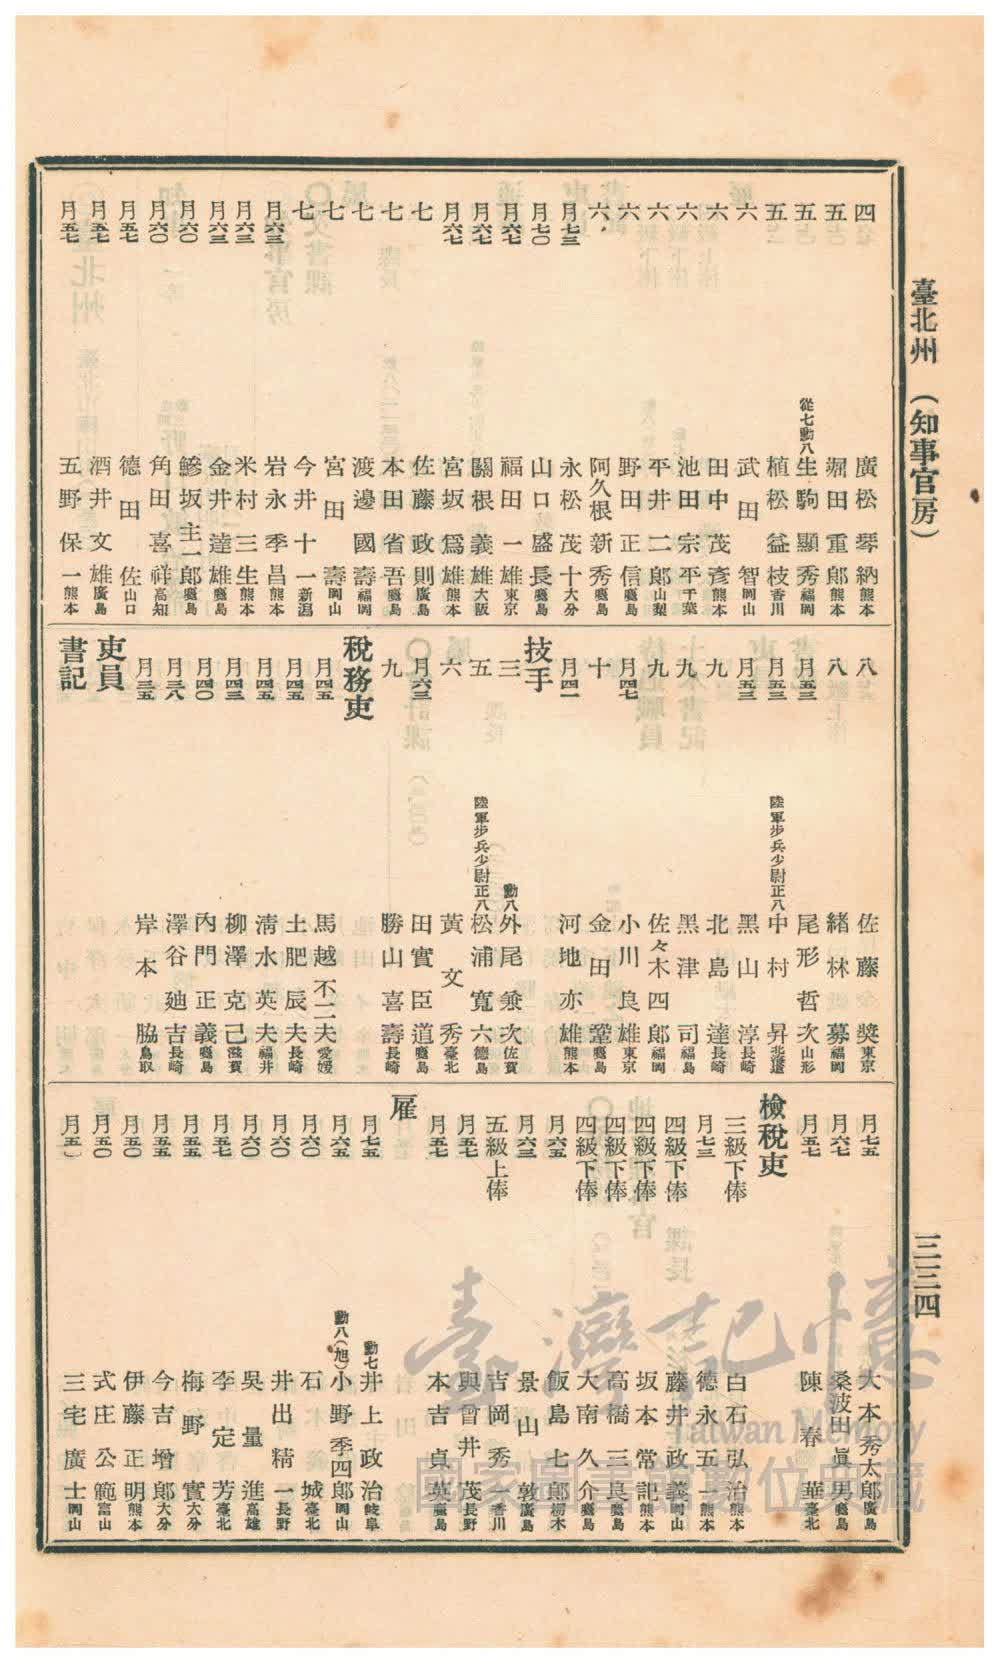 臺北州 (知事官房)
三三四
四 廣松琴納 熊本
五 堀田重郞 熊本
五 從七勳八 生駒顯秀 福岡
五 植松益枝 香川
六 武田智 岡山
六 田中茂彥 熊本
六 池田宗平 千葉
六 平井二郞 山梨
六 野田正信 鹿兒島
六 阿久根新秀 鹿兒島
月七三 永松茂十 大分
月七〇 山口盛長 鹿兒島
月六七 福田一雄 東京
月六七 關根義雄 大阪
月六七 宮坂爲雄 熊本
七 佐藤政則 廣島
七 本田省吾 鹿兒島
七 渡邊國壽 福岡
七 宮田壽 岡山
七 今井十一 新潟
月六三 岩永季昌 熊本
月六三 米村三生 熊本
月六三 金井達雄 鹿兒島
月六〇 鰺坂主一郞 鹿兒島
月六〇 角田喜祥 高知
月五七 德田佐 山口
月五七 酒井文雄 廣島
月五七 五野保一 熊本
八 佐藤獎 東京
八 緒林募 福岡
月五三 尾形哲次 山形
月五三 陸軍步兵少尉正八 中村昇 北海道
月五三 黑山淳 長崎
九 北島達 長崎
九 黑津司 福島
九 佐々木四郞 福岡
月四七 小川良雄 東京
十 金田 鹿兒島
月四一 河地亦雄 熊本
技手
三 勳八 外尾兼次 佐賀
五 陸軍步兵少尉正八 松浦寬六 德島
六 黃文秀 臺北
月六三 田實臣道 鹿兒島
九 勝山喜壽 長崎
稅務吏
月四五 馬越不二夫 愛媛
月四五 土肥辰夫 長崎
月四五 淸水英夫 福井
月四三 柳澤克己 滋賀
月四〇 內門正義 鹿兒島
月三八 澤谷廸吉 長崎
月三五 岸本脇 鳥取
吏員
書記
月七五 大本秀太郞 廣島
月六七 桑波田眞男 鹿兒島
月五七 陳春華 臺北
檢稅吏
三級下俸 白石弘治 熊本
月七三 德永五一 熊本
四級下俸 藤井政義 岡山
四級下俸 坂本常記 熊本
四級下俸 高橋三良 鹿兒島
四級下俸 大南久介 鹿兒島
月六五 飯島七郞 栃木
月六三 景山敦 廣島
五級上俸 吉岡秀一 香川
月五七 與曾井茂 長野
月五七 本吉貞英 鹿兒島
雇
月七五 勳七 井上政治 岐阜
月六五 勳八(旭) 小野季四郞 岡山
月六〇 石城 臺北
月六〇 井出精一 長野
月六〇 吳量進 高雄
月五七 李定芳 臺北
月五五 梅野實 大分
月五五 今吉增郞 大分
月五〇 伊藤正明 熊本
月五〇 式庄公範 富山
月五一 三宅廣士 岡山
臺灣記憶
Taiwan Memory
國家圖書館數位典藏